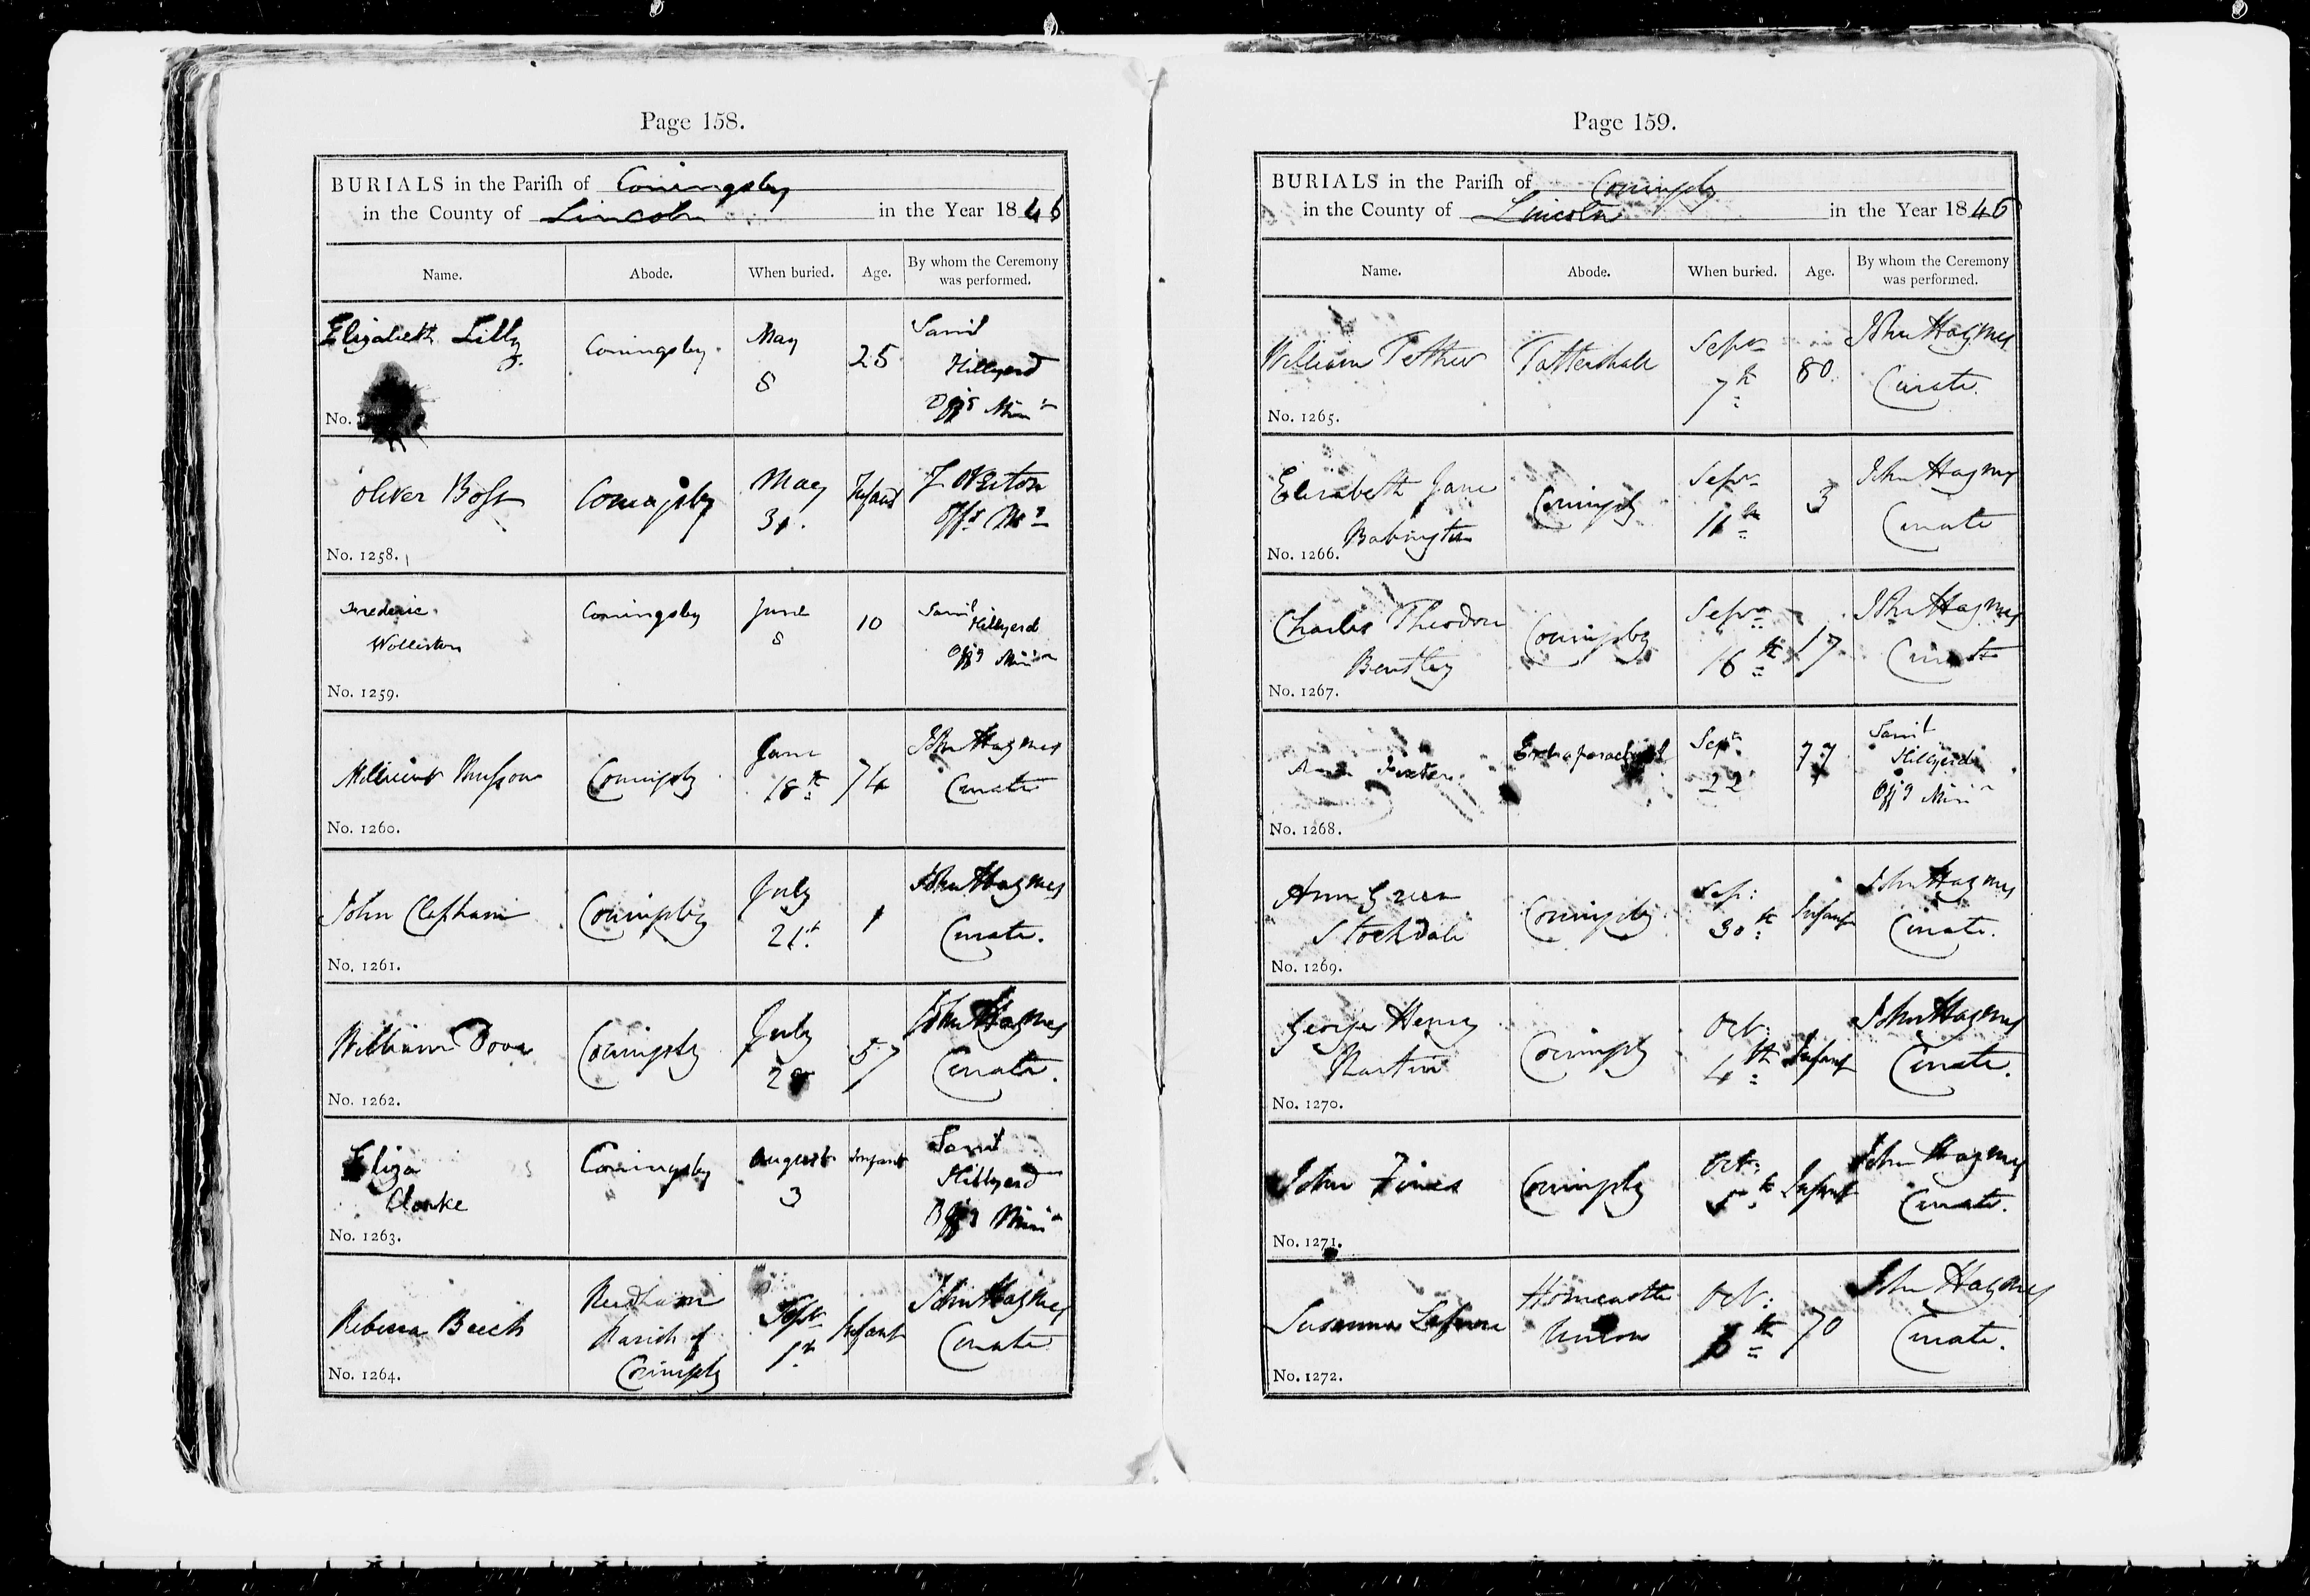 Page 158.
BURIALS in the Parish of Coningsby
in the County of Lincoln in the Year 1846
Name. Abode. When buried. Age. By whom the Ceremony was performed.
Elizabeth Lilly Coningsby. May 8 25 Saml Hillyerd Offg Minr
No.
Oliver Boss Coningsby May 31. Infant J Overton Offg Mr
No. 1258.
Frederic Wollerton Coningsby June 8 10 Saml Hillyerd Offg Minr
No. 1259.
Millicent Musson Coningsby June 18th 74 John Haynes Curate
No. 1260.
John Clapham Coningsby July 21st 1 John Haynes Curate.
No. 1261.
William Dove Coningsby July 57 John Haynes Curate.
No. 1262.
Eliza Clarke Coningsby August 3 Infant Saml Hillyerd Offg Minr
No. 1263.
Rebecca Beech Parish of Coningsby Sepr 1st Infant John Haynes Curate
No. 1264.
Page 159.
BURIALS in the Parish of Coningsby
in the County of Lincoln in the Year 1846
Name. Abode. When buried. Age. By whom the Ceremony was performed.
William Tattershall Sepr 7th 80 John Haynes Curate.
No. 1265.
Elizabeth Jane Babington Coningsby Sepr 11th 3 John Haynes Curate
No. 1266.
Charles Theodore Bentley Coningsby Sepr 16th 17 John Haynes Curate
No. 1267.
Extraparochial Sepr 22 77 Saml Hillyerd Offg Minr
No. 1268.
Ann Green Stockdale Coningsby Sep: 30th Infant John Haynes Curate.
No. 1269.
George Henry Martin Coningsby Oct: 4th Infant John Haynes Curate.
No. 1270.
John Fines Coningsby Oct: 5th Infant John Haynes Curate.
No. 1271.
Susanna Horncastle Union Oct: 70 John Haynes Curate.
No. 1272.